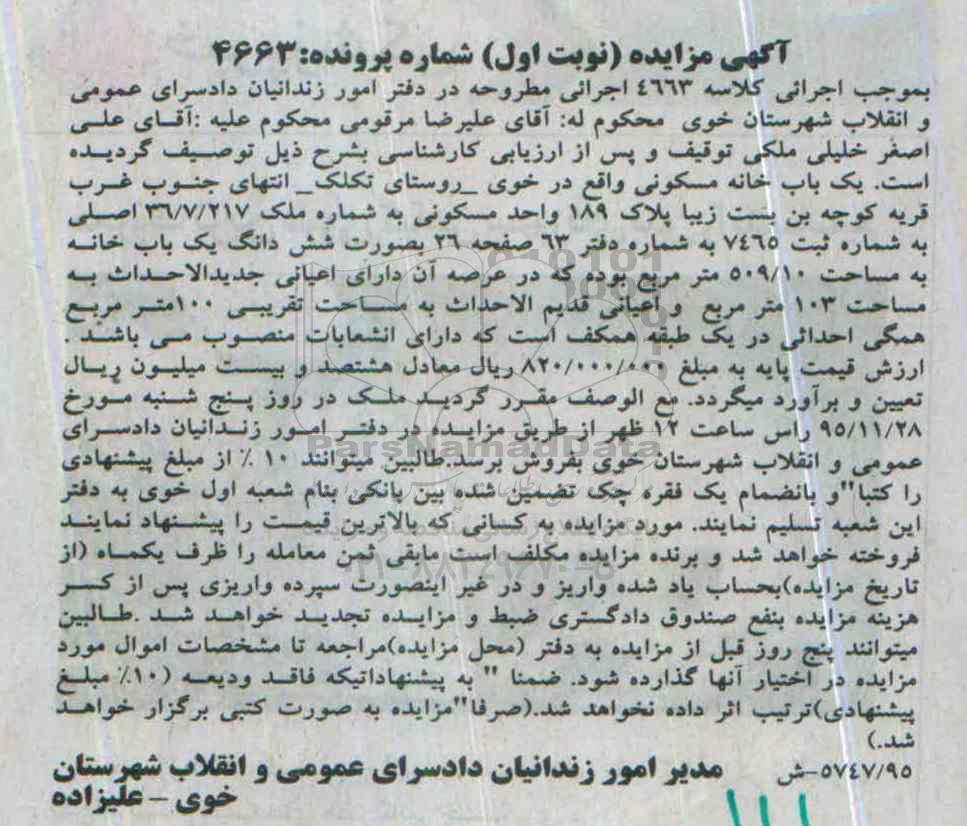 آگهی مزایده (نوبت اول) شماره پرونده: ۴۶۶۳
بموجب اجرائی کلاسه ٤٦٦٣ اجرائی مطروحه در دفتر امور زندانیان دادسرای عمومی
و انقلاب شهرستان خوی محکوم له: آقای علیرضا مرقومی محکوم علیه :آقای علی
اصغر خلیلی ملکی توقیف و پس از ارزیابی کارشناسی بشرح ذیل توصیف گردیده
است. یک باب خانه مسکونی واقع در خوی _روستای تکلک_ انتهای جنوب غرب
قریه کوچه بن بست زیبا پلاک ۱۸۹ واحد مسکونی به شماره ملک ۳٦/۷/۲۱۷ اصلی
به شماره ثبت ۷٤٦٥ به شماره دفتر ٦۳ صفحه ۲٦ بصورت شش دانگ یک باب خانه
به مساحت ٥۰۹/۱۰ متر مربع بوده که در عرصه آن دارای اعیانی جدیدالاحداث به
مساحت ۱۰۳ متر مربع و اعیانی قدیم الاحداث به مساحت تقریبی ۱۰۰متر مربع
همگی احداثی در یک طبقه همکف است که دارای انشعابات منصوب می باشد .
ارزش قیمت پایه به مبلغ ۸۲۰/۰۰۰/۰۰۰ ریال معادل هشتصد و بیست میلیون ریال
تعیین و برآورد میگردد. مع الوصف مقرر گردید ملک در روز پنج شنبه مورخ
۹٥/۱۱/۲۸ راس ساعت ۱۲ ظهر از طریق مزایده در دفتر امور زندانیان دادسرای
عمومی و انقلاب شهرستان خوی بفروش برسد.طالبین میتوانند ۱۰ ٪ از مبلغ پیشنهادی
را کتبا"و بانضمام یک فقره چک تضمین شده بین بانکی بنام شعبه اول خوی به دفتر
این شعبه تسلیم نمایند. مورد مزایده به کسانی که بالاترین قیمت را پیشنهاد نمایند
فروخته خواهد شد و برنده مزایده مکلف است مابقی ثمن معامله را ظرف یکماه (از
تاریخ مزایده)بحساب یاد شده واریز و در غیر اینصورت سپرده واریزی پس از کسر
هزینه مزایده بنفع صندوق دادگستری ضبط و مزایده تجدید خواهد شد .طالبین
میتوانند پنج روز قبل از مزایده به دفتر (محل مزایده)مراجعه تا مشخصات اموال مورد
مزایده در اختیار آنها گذارده شود. ضمنا " به پیشنهاداتیکه فاقد ودیعه (۱۰٪ مبلغ
پیشنهادی)ترتیب اثر داده نخواهد شد.(صرفا"مزایده به صورت کتبی برگزار خواهد
شد.)
٥۷٤۷/۹٥-ش مدیر امور زندانیان دادسرای عمومی و انقلاب شهرستان
خوی - علیزاده
ParsNamadData